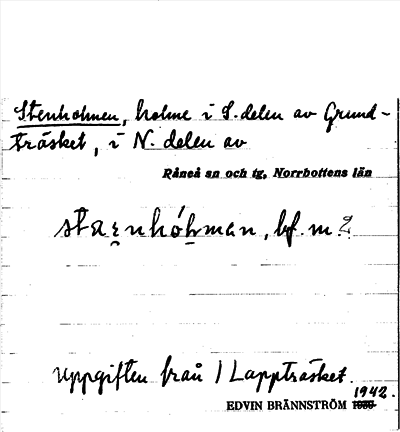 Stenholmen, holme i S. delen av Grund-
träsket, i N. delen av
Råneå sn och tg, Norrbottens län
bf. m 2.
Uppgiften från 1 Lappträsket.
1942.
EDVIN BRÄNNSTRÖM 1939